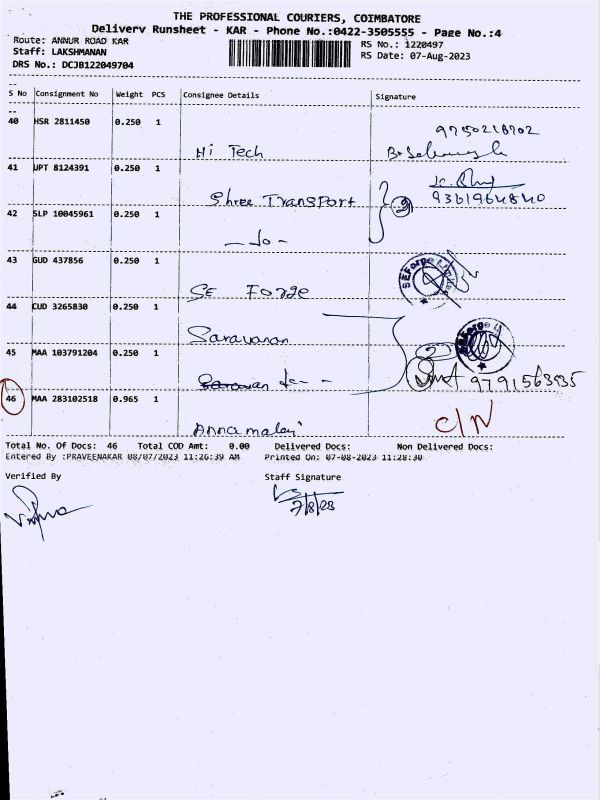 THE PROFESSIONAL COURIERS, COIMBATORE
Delivery Runsheet - KAR - Phone No.:0422-3505555 - Page No.:4
Route: ANNUR ROAD KAR
Staff: LAKSHMANAN
DRS No.: DCJB122049704
RS No.: 1220497
RS Date: 07-Aug-2023
S No Consignment No Weight PCS Consignee Details Signature
40 HSR 2811450 0.250 1
9750218702
Hi Tech
41 UPT 8124391 0.250 1
Shree Transport
9361964840
2
42 SLP 10045961 0.250 1
- do -
43 GUD 437856 0.250 1
SE Forge
SEForge
44 CUD 3265830 0.250 1
Saravanan
Forge
45 MAA 103791204 0.250 1
2
9791563935
46 MAA 283102518 0.965 1
Annamalai
C/N
Total No. Of Docs: 46 Total COD Amt: 0.00 Delivered Docs: Non Delivered Docs:
Entered By :PRAVEENAKAR 08/07/2023 11:26:39 AM Printed On: 07-08-2023 11:28:30
Verified By Staff Signature
7/8/23